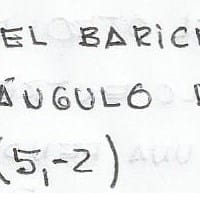 EL BARIC
ÁUGULO
(5,-2)